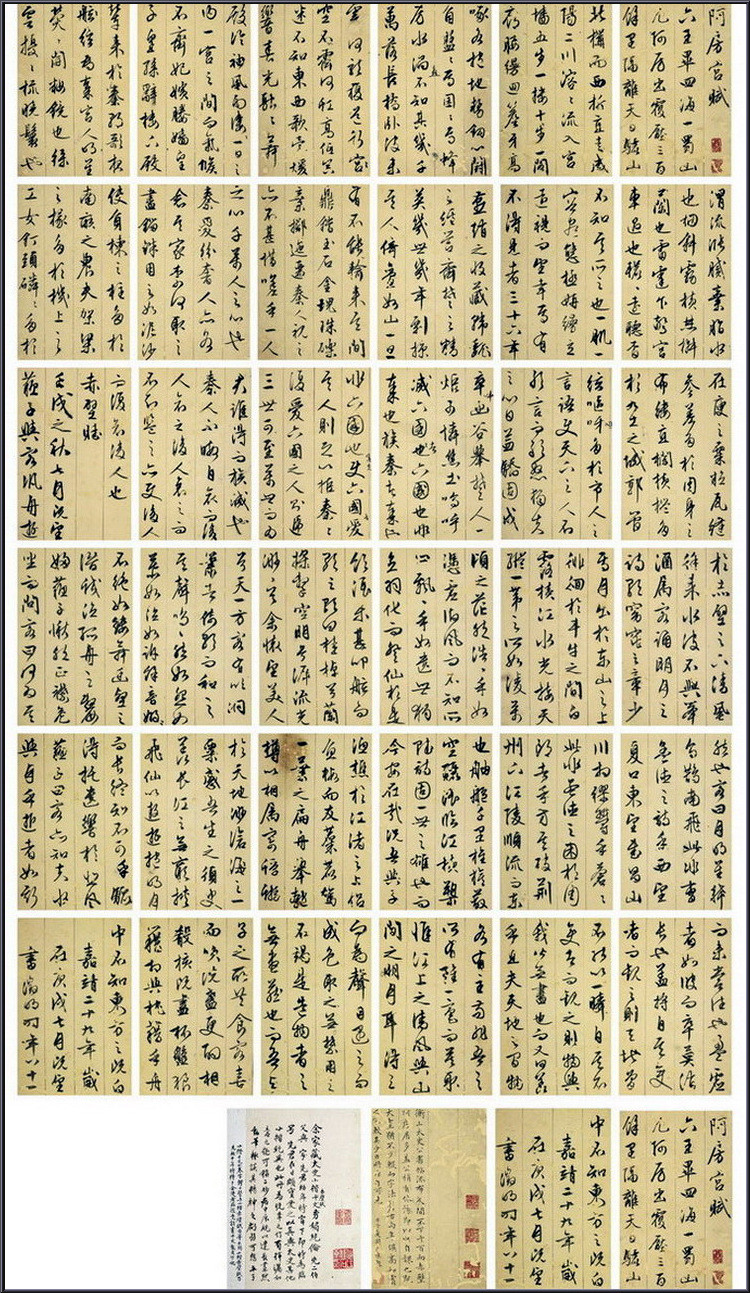 阿房宮賦
六王畢四海一蜀山
兀阿房出覆壓三百
餘里隔離天日驪山
北構而西折直走咸
陽二川溶溶流入宮
牆五步一樓十步一閣
廊腰縵回簷牙高
啄各抱地勢鉤心鬬
角盤盤焉囷囷焉蜂
房水渦矗不知其幾千
萬落長橋臥波未
雲何龍複道行
空不霽何虹高低冥
迷不知東西歌臺暖
響春光融融舞
殿冷袖風雨淒淒一日之
內一宮之間而氣候
不齊妃嬪媵嬙王
子皇孫辭樓下殿
輦來於秦朝歌夜
絃為秦宮人明星
熒熒開粧鏡也綠
雲擾擾梳曉鬟也
渭流漲膩棄脂水
也烟斜霧橫焚椒
蘭也雷霆乍驚宮
車過也轆轆遠聽杳
不知其所之也一肌一
容盡態極妍縵立
遠視而望幸焉有
不得見者三十六年
燕趙之收藏韓魏
之經營齊楚之精
英幾世幾年剽掠
其人倚疊如山一旦
有不能輸來其間
鼎鐺玉石金塊珠礫
棄擲邐迤秦人視之
亦不甚惜嗟乎一人
之心千萬人之心也
秦愛紛奢人亦各
念其家奈何取之
盡錙銖用之如泥沙
使負棟之柱多於
南畝之農夫架梁
之椽多於機上之
工女釘頭磷磷多於
在庾之粟粒瓦縫
參差多於周身之
帛縷直欄橫檻多
於九土之城郭管
絃嘔啞多於市人之
言語使天下之人不
敢言而敢怒獨夫
之心日益驕固戍
卒叫函谷舉楚人一
炬可憐焦土嗚呼
滅六國者六國也非
秦也族秦者秦也
非六國也使六國愛
其人則足以拒秦秦
復愛六國之人則遞
三世可至萬世而為
君誰得而族滅也
秦人不暇自哀而後
人哀之後人哀之而
不鑑之亦使後人
而復哀後人也
赤壁賦
壬戌之秋七月既望
蘇子與客汎舟遊
於赤壁之下清風
徐來水波不興舉
酒屬客誦明月之
詩歌窈窕之章少
焉月出於東山之上
徘徊於斗牛之間白
露橫江水光接天
縱一葦之所如凌萬
頃之茫然浩浩乎如
憑虛御風而不知所
止飄飄乎如遺世獨
立羽化而登仙於是
飲酒樂甚扣舷而
歌之歌曰桂棹兮蘭
槳擊空明兮泝流光
渺渺兮余懷望美人
兮天一方客有吹洞
簫者倚歌而和之
其聲嗚嗚然如怨如
慕如泣如訴餘音嫋
不絕如縷舞幽壑之
潛蛟泣孤舟之嫠
婦蘇子愀然正襟危
坐而問客曰何為其
然也客曰月明星稀
烏鵲南飛此非曹
孟德之詩乎西望
夏口東望武昌山
川相繆鬱乎蒼蒼
此非孟德之困於周
郎者乎方其破荊
州下江陵順流而東
也舳艫千里旌旗蔽
空釃酒臨江橫槊
賦詩固一世之雄也而
今安在哉況吾與子
漁樵於江渚之上侶
魚蝦而友麋鹿駕
一葉之扁舟舉匏
樽以相屬寄蜉蝣
於天地渺滄海之一
粟哀吾生之須臾
羨長江之無窮挾
飛仙以遨遊抱明月
而長終知不可乎驟
得托遺響於悲風
蘇子曰客亦知夫水
與月乎逝者如斯
而未嘗往也盈虛
者如彼而卒莫消
長也蓋將自其變
者而觀之則天地曾
不能以一瞬自其不
變者而觀之則物與
我皆無盡也而又何羨
乎且夫天地之間物
各有主苟非吾之
所有雖一毫而莫取
惟江上之清風與山
間之明月耳得之
而為聲目遇之而
成色取之無禁用之
不竭是造物者之
無盡藏也而吾與
子之所共食客喜
而笑洗盞更酌肴
核既盡杯盤狼
藉相與枕藉乎舟
中不知東方之既白
嘉靖二十九年歲
在庚戌七月既望
書徵明時年八十一
阿房宮賦
六王畢四海一蜀山
兀阿房出覆壓三百
餘里隔離天日驪山
中不知東方之既白
嘉靖二十九年歲
在庚戌七月既望
書徵明時年八十一